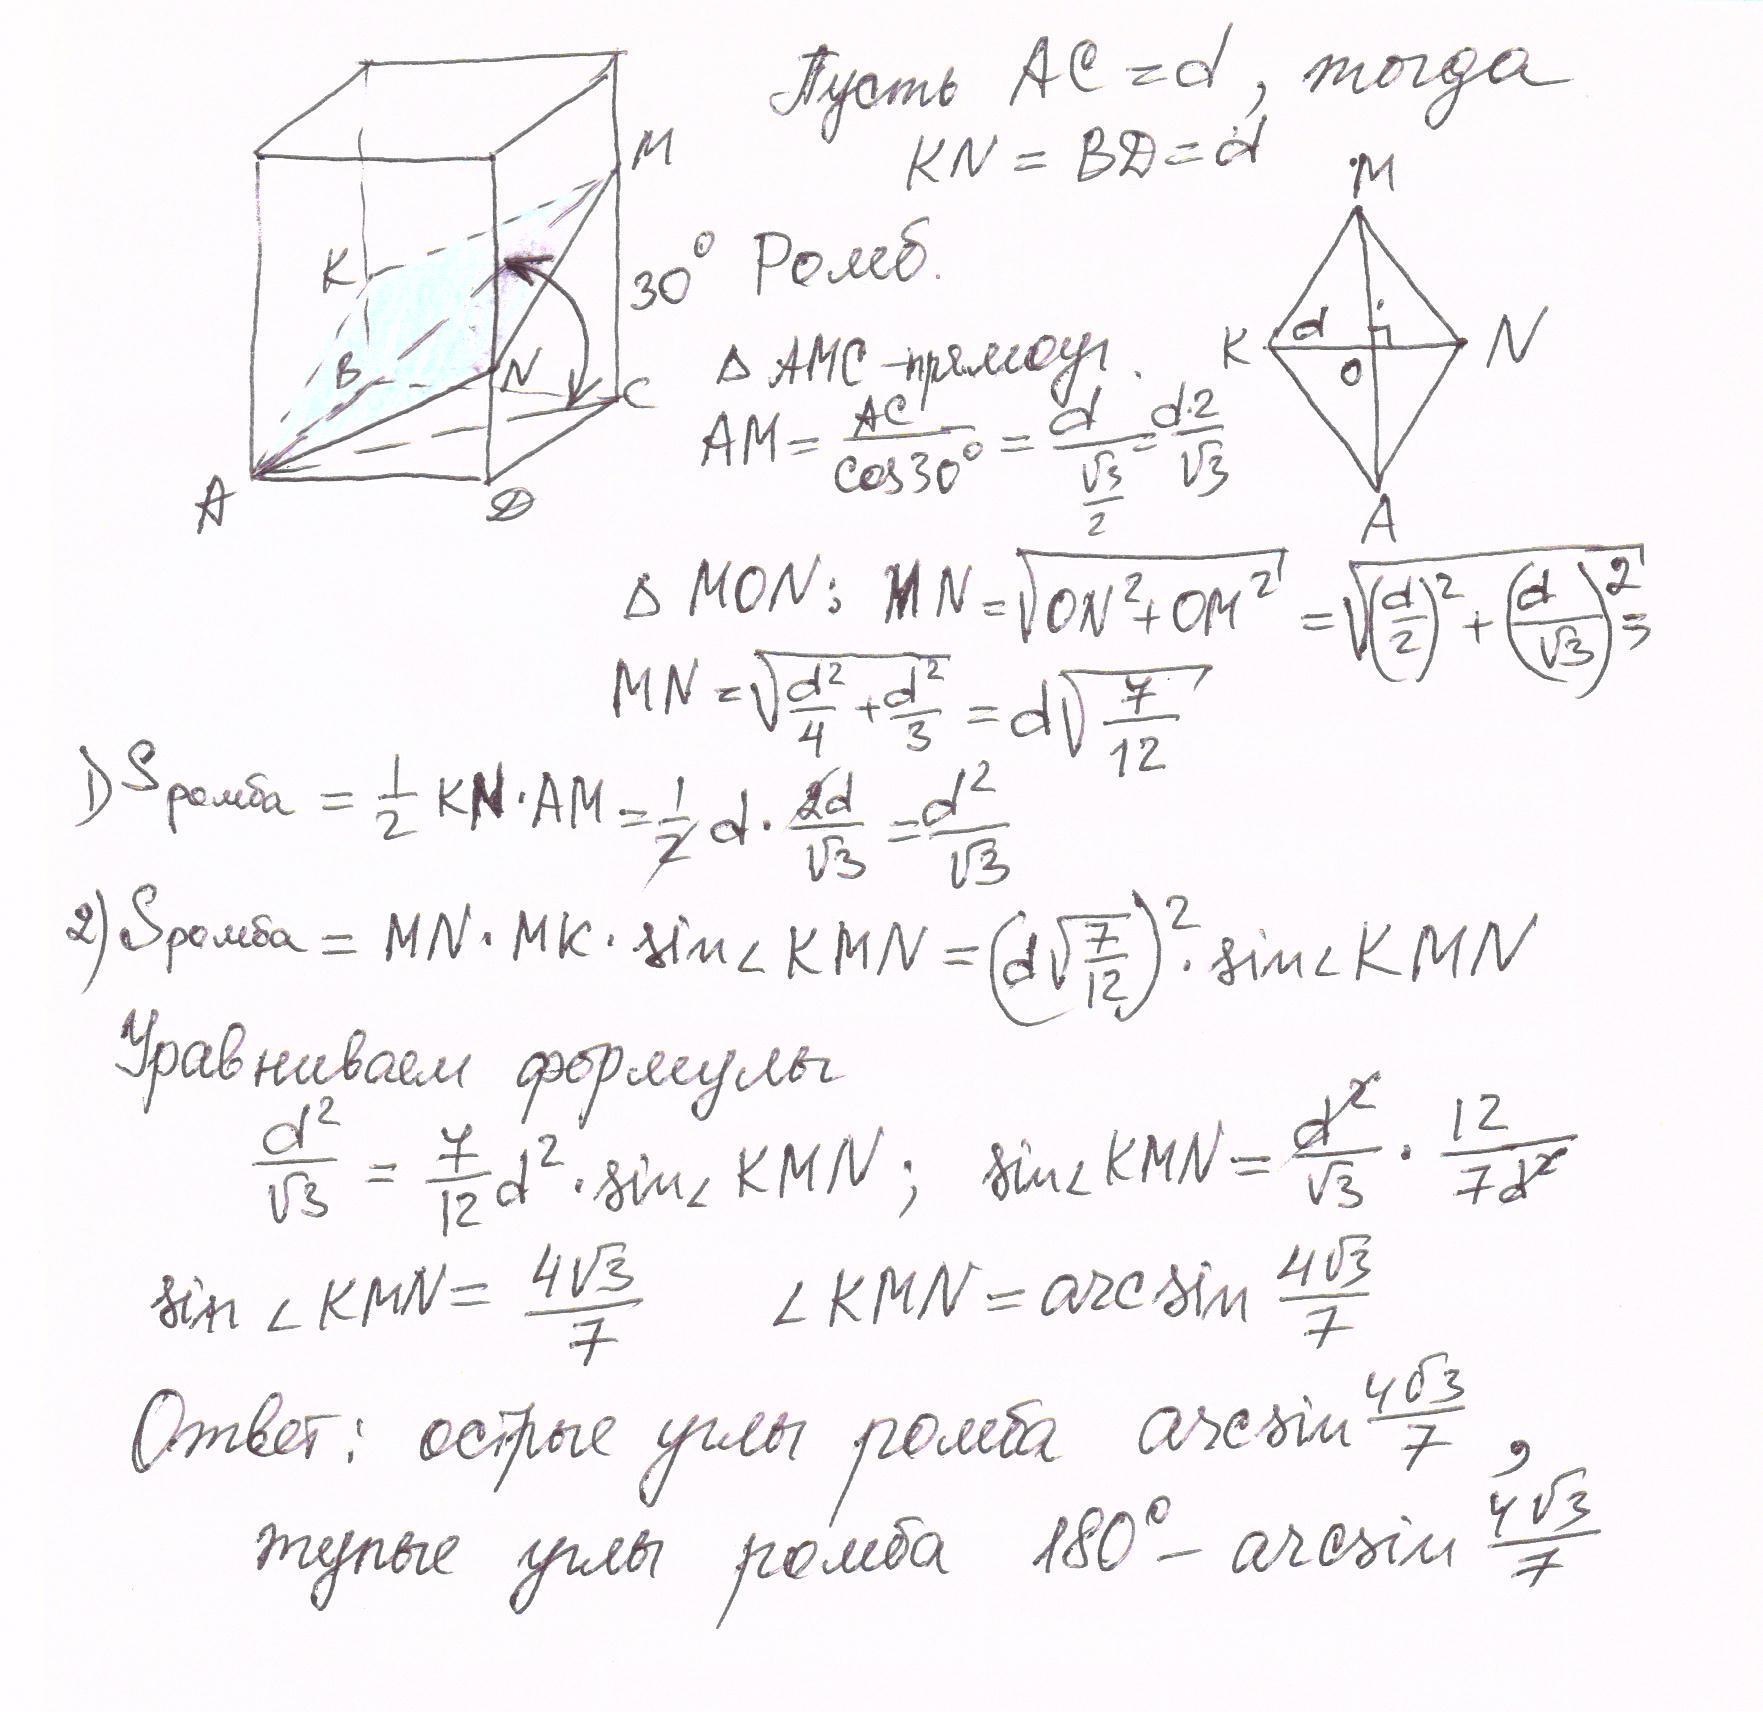 Пусть AC = d, тогда
KN = BD = d
M
K
B
N
C
A
D
30°
Ромб.
M
K
d
O
N
A
Δ AMC – прямоуг.
AM = AC/cos30° = d/(√3/2) = d·2/√3
Δ MON: MN = √(ON² + OM²) = √((d/2)² + (d/√3)²) =
MN = √(d²/4 + d²/3) = d√(7/12)
1) Sромба = 1/2 KN · AM = 1/2 d · 2d/√3 = d²/√3
2) Sромба = MN · MK · sin∠KMN = (d√(7/12))² · sin∠KMN
Уравниваем формулы
d²/√3 = 7/12 d² · sin∠KMN; sin∠KMN = d²/√3 · 12/7d²
sin∠KMN = 4√3/7 ∠KMN = arcsin 4√3/7
Ответ: острые углы ромба arcsin 4√3/7,
тупые углы ромба 180° – arcsin 4√3/7